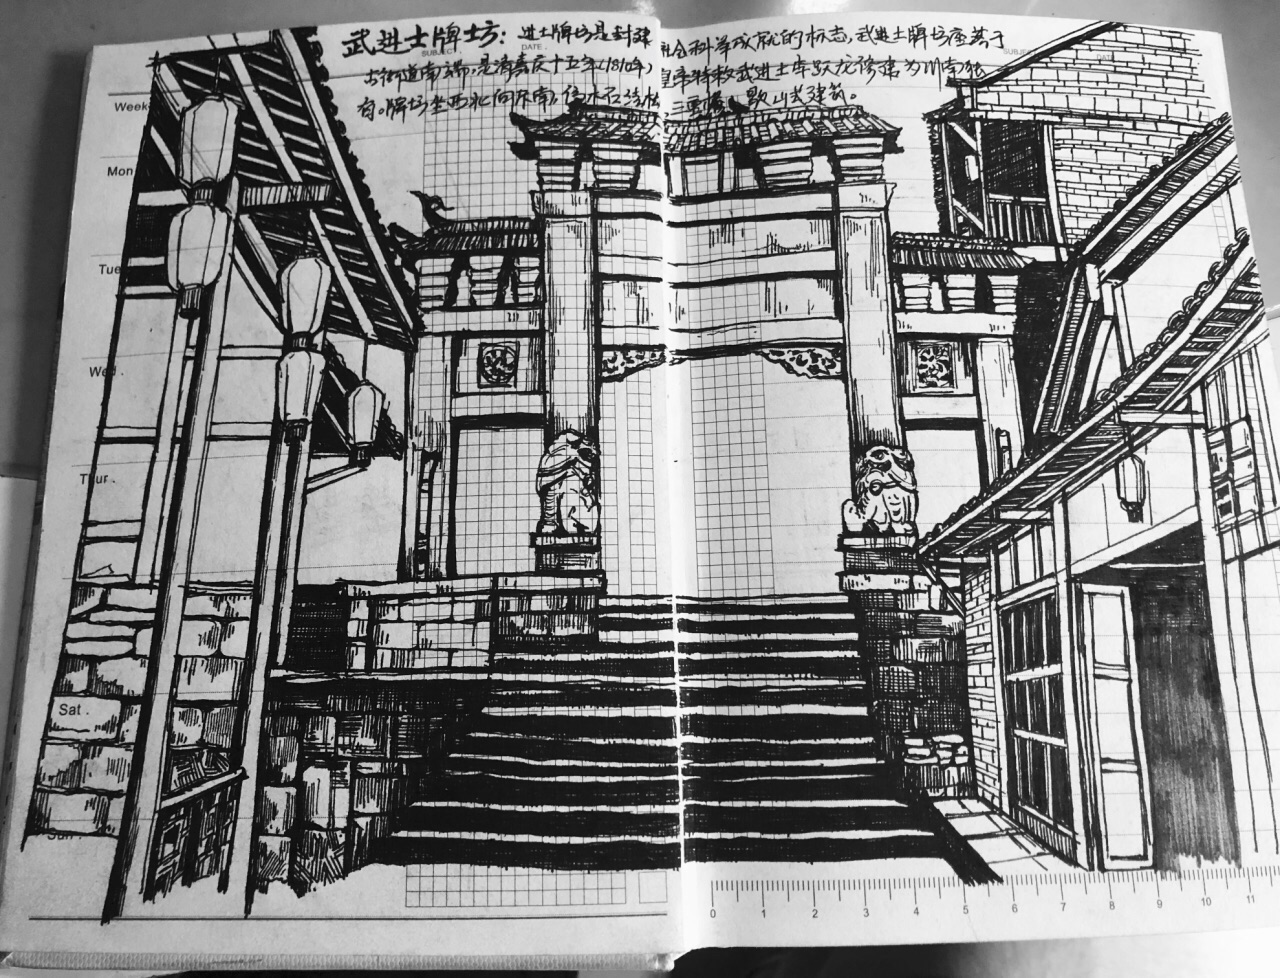 武进士牌坊：进士牌坊是封建社会科考成就的标志，武进士牌坊座落于
古街道南端，是清嘉庆十五年（1810年）皇帝特敕武进士车跃龙修建 为川南独
有。牌坊坐西北向东南，系木石结构 三重檐 歇山式建筑。
SUBJECT DATE . SUBJECT DATE
Week
Mon
Tue
Wed .
Thur .
Sat .
Sun
0 1 2 3 4 5 6 7 8 9 10 11